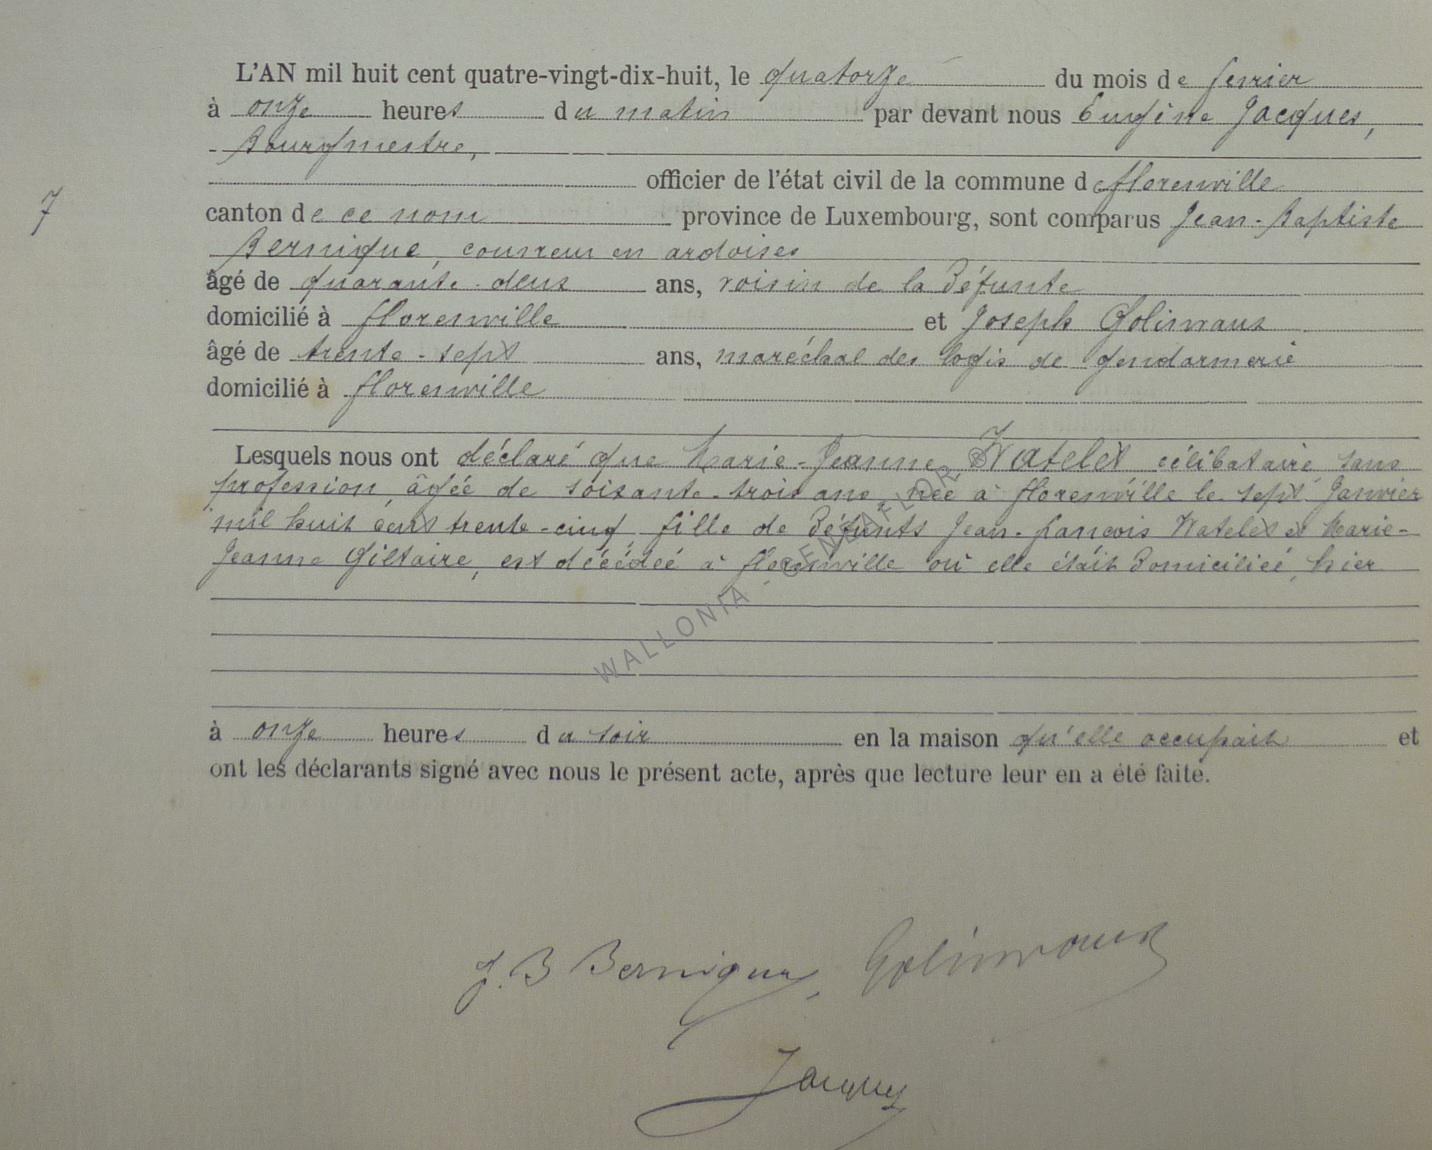 L'AN mil huit cent quatre-vingt-dix-huit, le quatorze du mois de fevrier
à onze heures du matin par devant nous Eugène Jacques,
Bourgmestre,
officier de l'état civil de la commune de florenville
7
canton de ce nom province de Luxembourg, sont comparus Jean-Baptiste
Bernique, couvreur en ardoises
âgé de quarante-deux ans, voisin de la défunte
domicilié à florenville et Joseph Golinvaux
âgé de trente-sept ans, maréchal des logis de gendarmerie
domicilié à florenville
Lesquels nous ont déclaré que Marie-Jeanne Watelet célibataire sans
profession, âgée de soixante-trois ans, née à florenville le sept Janvier
mil huit cent trente-cinq fille de défunts Jean-francois Watelet et Marie-
Jeanne Giltaire, est décédée à florenville où elle était domiciliée, hier
WALLONIA - GENEAFLOR ®
à onze heures du soir en la maison qu'elle occupait et
ont les déclarants signé avec nous le présent acte, après que lecture leur en a été faite.
J. B Bernique, Golinvaux
Jacques